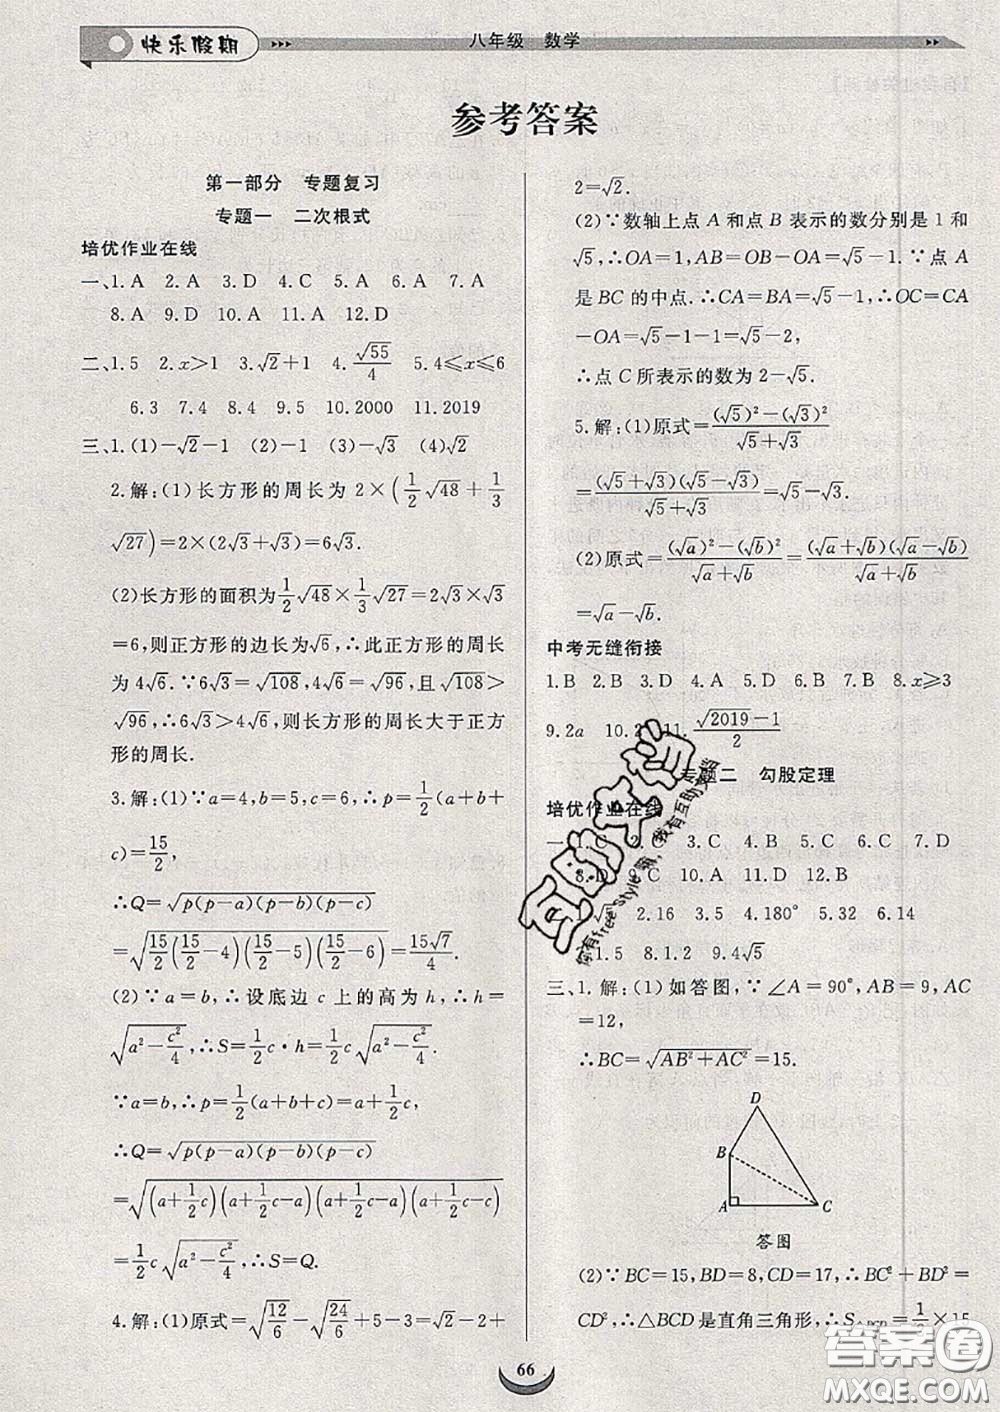 快乐假期
八年级 数学
参考答案
第一部分 专题复习
专题一 二次根式
培优作业在线
一、1.A 2.A 3.D 4.C 5.A 6.A 7.A
8.A 9.D 10.A 11.A 12.D
二、1.5 2.x>1 3.√2+1 4.√55/4 5.4≤x≤6
6.3 7.4 8.4 9.5 10.2000 11.2019
三、1.(1)-√2-1 (2)-1 (3)-√3 (4)√2
2.解:(1)长方形的周长为 2×(1/2√48+1/3
√27)=2×(2√3+√3)=6√3.
(2)长方形的面积为1/2√48×1/3√27=2√3×√3
=6,则正方形的边长为√6,∴此正方形的周长
为4√6.∵6√3=√108,4√6=√96,且√108>
√96,∴6√3>4√6,则长方形的周长大于正方
形的周长.
3.解:(1)∵a=4,b=5,c=6,∴p=1/2(a+b+
c)=15/2,
∴Q=√p(p-a)(p-b)(p-c)
=√15/2(15/2-4)(15/2-5)(15/2-6)=15√7/4.
(2)∵a=b,∴设底边 c 上的高为 h,∴h=
√a²-c²/4,∴S=1/2c·h=1/2c√a²-c²/4.
∵a=b,∴p=1/2(a+b+c)=a+1/2c,
∴Q=√p(p-a)(p-b)(p-c)
=√(a+1/2c)(a+1/2c-a)(a+1/2c-a)(a+1/2c-c)
=1/2c√a²-c²/4,∴S=Q.
4.解:(1)原式=√12/6-√24/6+5-3=√2-2+
2=√2.
(2)∵数轴上点 A 和点 B 表示的数分别是 1 和
√5,∴OA=1,AB=OB-OA=√5-1.∵点 A
是 BC 的中点.∴CA=BA=√5-1,∴OC=CA
-OA=√5-1-1=√5-2,
∴点 C 所表示的数为 2-√5.
5.解:(1)原式=(√5)²-(√3)²/√5+√3
=(√5+√3)(√5-√3)/√5+√3=√5-√3.
(2)原式=(√a)²-(√b)²/√a+√b=(√a+√b)(√a-√b)/√a+√b
=√a-√b.
中考无缝衔接
1.B 2.B 3.D 4.A 5.D 6.B 7.B 8.x≥3
9.2a 10.2 11.√2019-1/2
专题二 勾股定理
培优作业在线
一、1.C 2.C 3.C 4.B 5.C 6.C 7.D
8.D 9.C 10.A 11.D 12.B
2.16 3.5 4.180° 5.32 6.14
7.1.5 8.1.2 9.4√5
三、1.解:(1)如答图,∵∠A=90°,AB=9,AC
=12,
∴BC=√AB²+AC²=15.
D
B
A
C
答图
(2)∵BC=15,BD=8,CD=17,∴BC²+BD²=
CD²,∴△BCD是直角三角形,∴S△BCD=1/2×15
66
互助文档
你有free style 嘛，我有互助文档
答案圈
MXQE.COM